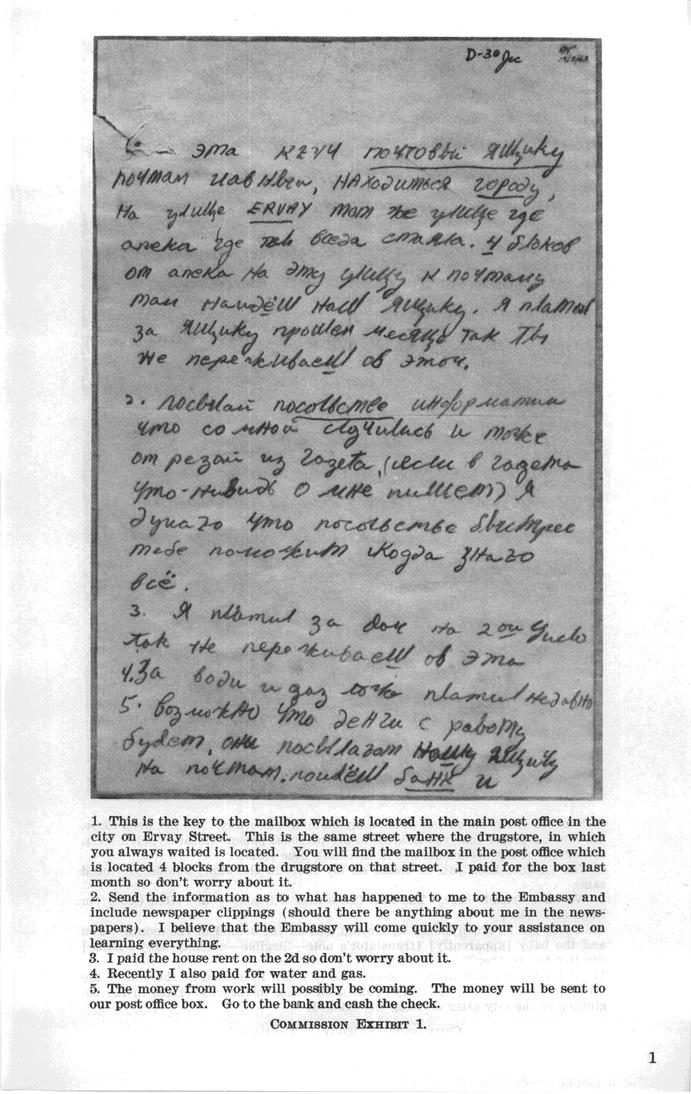 D-30
эта почтовый ящику
находиться городу,
на улице ERVAY тот же улице где
апека где вседа стаяла. 4 блоков
от апека на эту улицу к почтаму
там найдёш наш ящику. я платил
за ящику прошлеи месяце так ты
не переживаеш об этом.
2. посылай посольстве информатия
что со мной случились и тоже
от резай из газета, (если в газета
что-нибудь о мне пишет) я
думаю что посольстве быстрее
тебе поможит когда знаю
всё.
3. Я платил за дом на 2ои число
так не переживаеш об эта
4. За води и газ тоже платил недавно
5. возможно что денги с работу
будет, они посылают нашу ящику
на почтам. поидёш банк и
1. This is the key to the mailbox which is located in the main post office in the
city on Ervay Street. This is the same street where the drugstore, in which
you always waited is located. You will find the mailbox in the post office which
is located 4 blocks from the drugstore on that street. I paid for the box last
month so don't worry about it.
2. Send the information as to what has happened to me to the Embassy and
include newspaper clippings (should there be anything about me in the news-
papers). I believe that the Embassy will come quickly to your assistance on
learning everything.
3. I paid the house rent on the 2d so don't worry about it.
4. Recently I also paid for water and gas.
5. The money from work will possibly be coming. The money will be sent to
our post office box. Go to the bank and cash the check.
COMMISSION EXHIBIT 1.
1